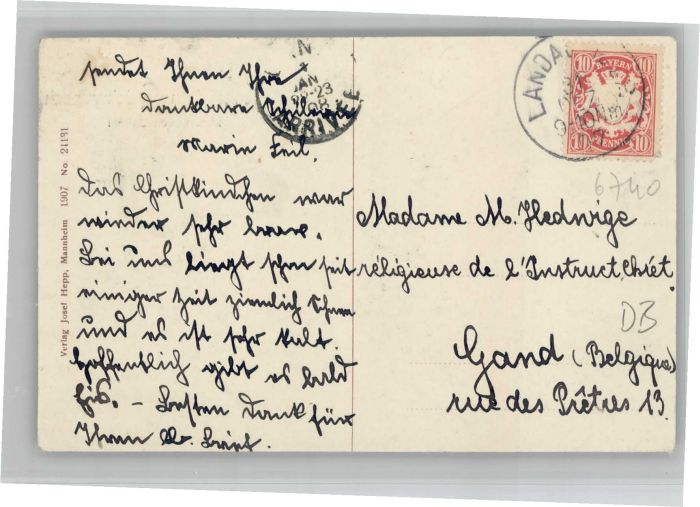 sendet Ihnen Ihre
dankbare Schülerin
Marie Feil.
Das Christkindchen war
wieder sehr brav.
Bei uns liegt schon seit
einiger Zeit ziemlich Schnee
und es ist sehr kalt.
Hoffentlich gibt es bald
Eis. – Besten Dank für
Ihren lb. Brief.
Verlag Josef Hepp, Mannheim 1907 No. 24131
JAN
08
ARRIVÉE
LANDAU
10 BAYERN 10
10 PFENNIG 10
6740
Madame M. Hedwige
réligieuse de l'Instruct. chrét.
DB
Gand (Belgique)
rue des Prêtres 13.